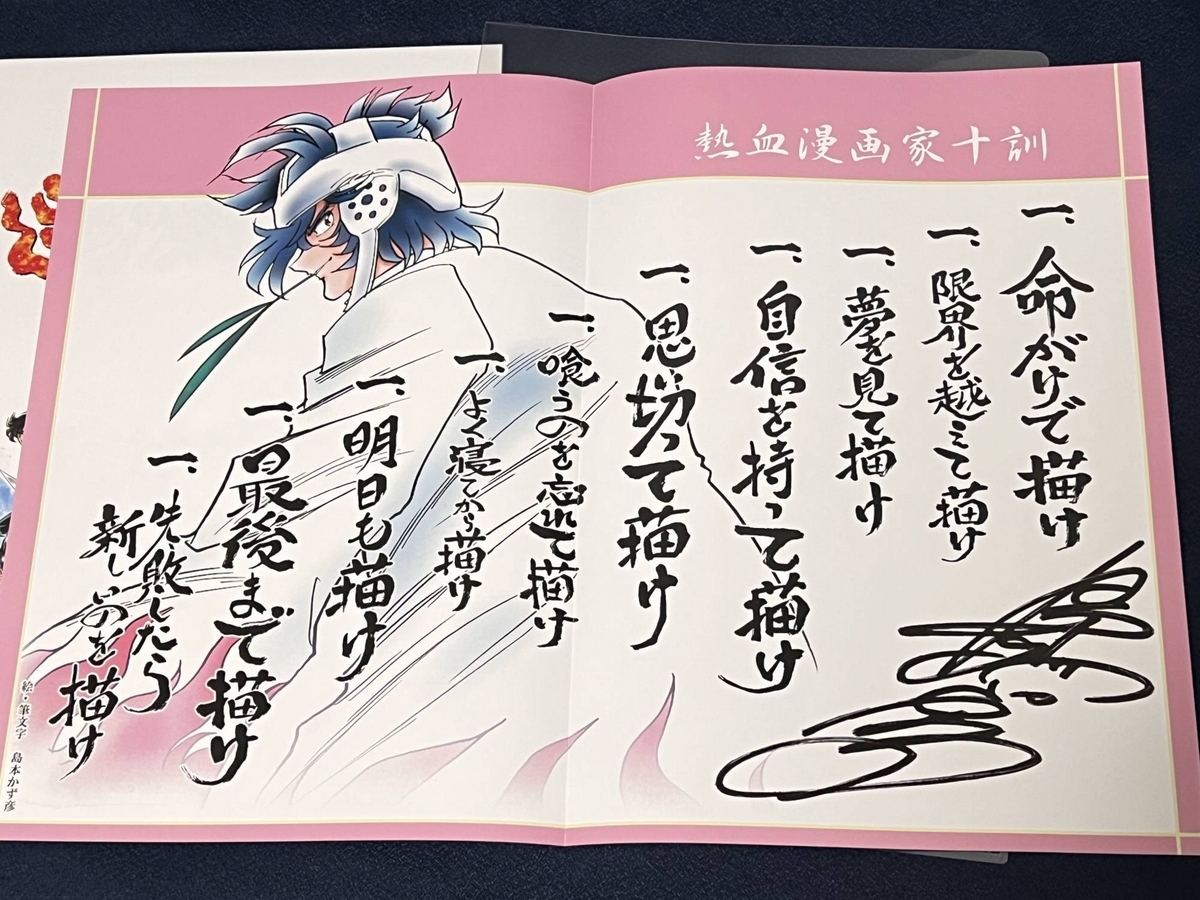 熱血漫画家十訓
一、命がけで描け
一、限界を越えて描け
一、夢を見て描け
一、自信を持って描け
一、思い切って描け
一、喰うのを忘れて描け
一、よく寝てから描け
一、明日も描け
一、最後まで描け
一、失敗したら
新しいのを描け
絵・筆文字 島本かず彦